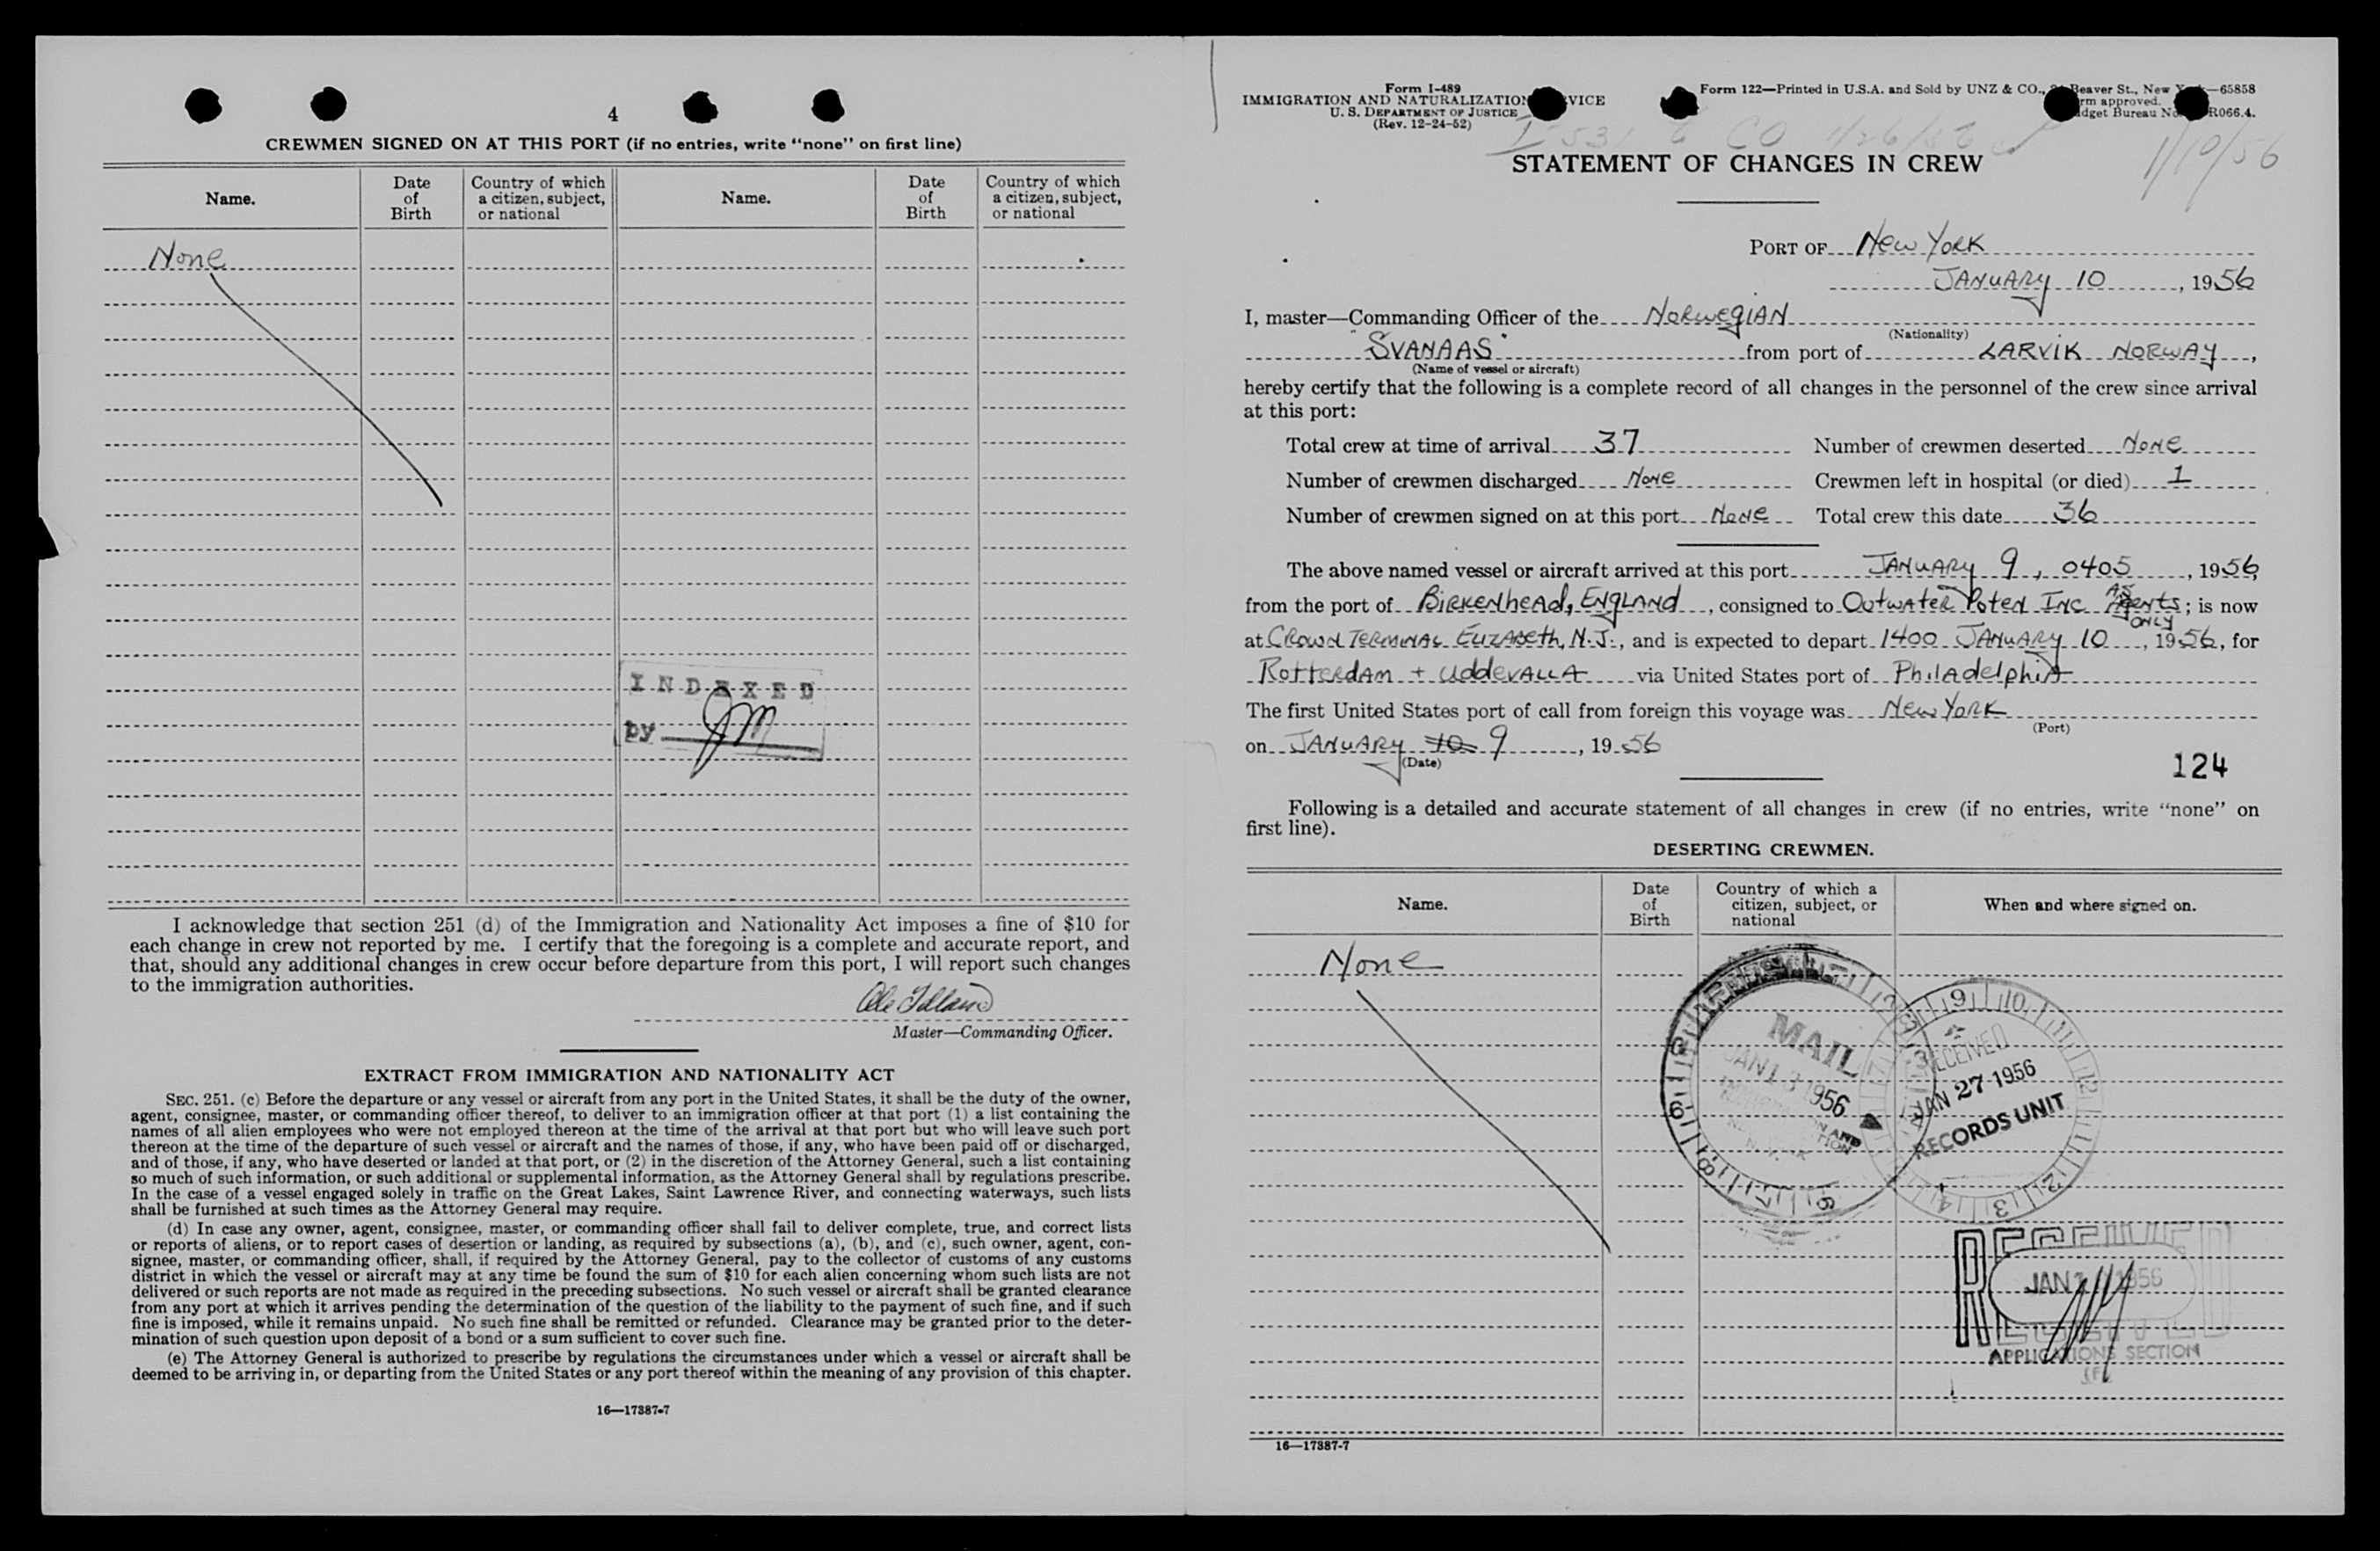 4
CREWMEN SIGNED ON AT THIS PORT (if no entries, write "none" on first line)
Name. Date of Birth Country of which a citizen, subject, or national Name. Date of Birth Country of which a citizen, subject, or national
None
INDEXED
by JM
I acknowledge that section 251 (d) of the Immigration and Nationality Act imposes a fine of $10 for
each change in crew not reported by me. I certify that the foregoing is a complete and accurate report, and
that, should any additional changes in crew occur before departure from this port, I will report such changes
to the immigration authorities.
Master—Commanding Officer.
EXTRACT FROM IMMIGRATION AND NATIONALITY ACT
SEC. 251. (c) Before the departure or any vessel or aircraft from any port in the United States, it shall be the duty of the owner,
agent, consignee, master, or commanding officer thereof, to deliver to an immigration officer at that port (1) a list containing the
names of all alien employees who were not employed thereon at the time of the arrival at that port but who will leave such port
thereon at the time of the departure of such vessel or aircraft and the names of those, if any, who have been paid off or discharged,
and of those, if any, who have deserted or landed at that port, or (2) in the discretion of the Attorney General, such a list containing
so much of such information, or such additional or supplemental information, as the Attorney General shall by regulations prescribe.
In the case of a vessel engaged solely in traffic on the Great Lakes, Saint Lawrence River, and connecting waterways, such lists
shall be furnished at such times as the Attorney General may require.
(d) In case any owner, agent, consignee, master, or commanding officer shall fail to deliver complete, true, and correct lists
or reports of aliens, or to report cases of desertion or landing, as required by subsections (a), (b), and (c), such owner, agent, con-
signee, master, or commanding officer, shall, if required by the Attorney General, pay to the collector of customs of any customs
district in which the vessel or aircraft may at any time be found the sum of $10 for each alien concerning whom such lists are not
delivered or such reports are not made as required in the preceding subsections. No such vessel or aircraft shall be granted clearance
from any port at which it arrives pending the determination of the question of the liability to the payment of such fine, and if such
fine is imposed, while it remains unpaid. No such fine shall be remitted or refunded. Clearance may be granted prior to the deter-
mination of such question upon deposit of a bond or a sum sufficient to cover such fine.
(e) The Attorney General is authorized to prescribe by regulations the circumstances under which a vessel or aircraft shall be
deemed to be arriving in, or departing from the United States or any port thereof within the meaning of any provision of this chapter.
16—17387-7
Form I-489
IMMIGRATION AND NATURALIZATION VICE
U. S. DEPARTMENT OF JUSTICE
(Rev. 12-24-52)
Form 122—Printed in U.S.A. and Sold by UNZ & CO., Beaver St., New —65858
rm approved.
dget Bureau No. R066.4.
1/10/56
STATEMENT OF CHANGES IN CREW
PORT OF New York
JANUARY 10, 1956
I, master—Commanding Officer of the NORWEGIAN
(Nationality)
"SVANAAS" from port of LARVIK NORWAY,
(Name of vessel or aircraft)
hereby certify that the following is a complete record of all changes in the personnel of the crew since arrival
at this port:
Total crew at time of arrival 37 Number of crewmen deserted None
Number of crewmen discharged None Crewmen left in hospital (or died) 1
Number of crewmen signed on at this port None Total crew this date 36
The above named vessel or aircraft arrived at this port JANUARY 9, 0405, 1956,
from the port of BIRKENHEAD, ENGLAND, consigned to Outwater Poten Inc As Agents only; is now
at CROWN TERMINAL ELIZABETH, N.J., and is expected to depart 1400 JANUARY 10, 1956, for
Rotterdam + UddevALLA via United States port of Philadelphia
The first United States port of call from foreign this voyage was New York
(Port)
on JANUARY 10 9, 1956
(Date)
124
Following is a detailed and accurate statement of all changes in crew (if no entries, write "none" on
first line).
DESERTING CREWMEN.
Name. Date of Birth Country of which a citizen, subject, or national When and where signed on.
None
MAIL
JAN 13 1956
RECEIVED
JAN 27 1956
RECORDS UNIT
RECEIVED
JAN 1956
APPLICATIONS SECTION
16—17387-7